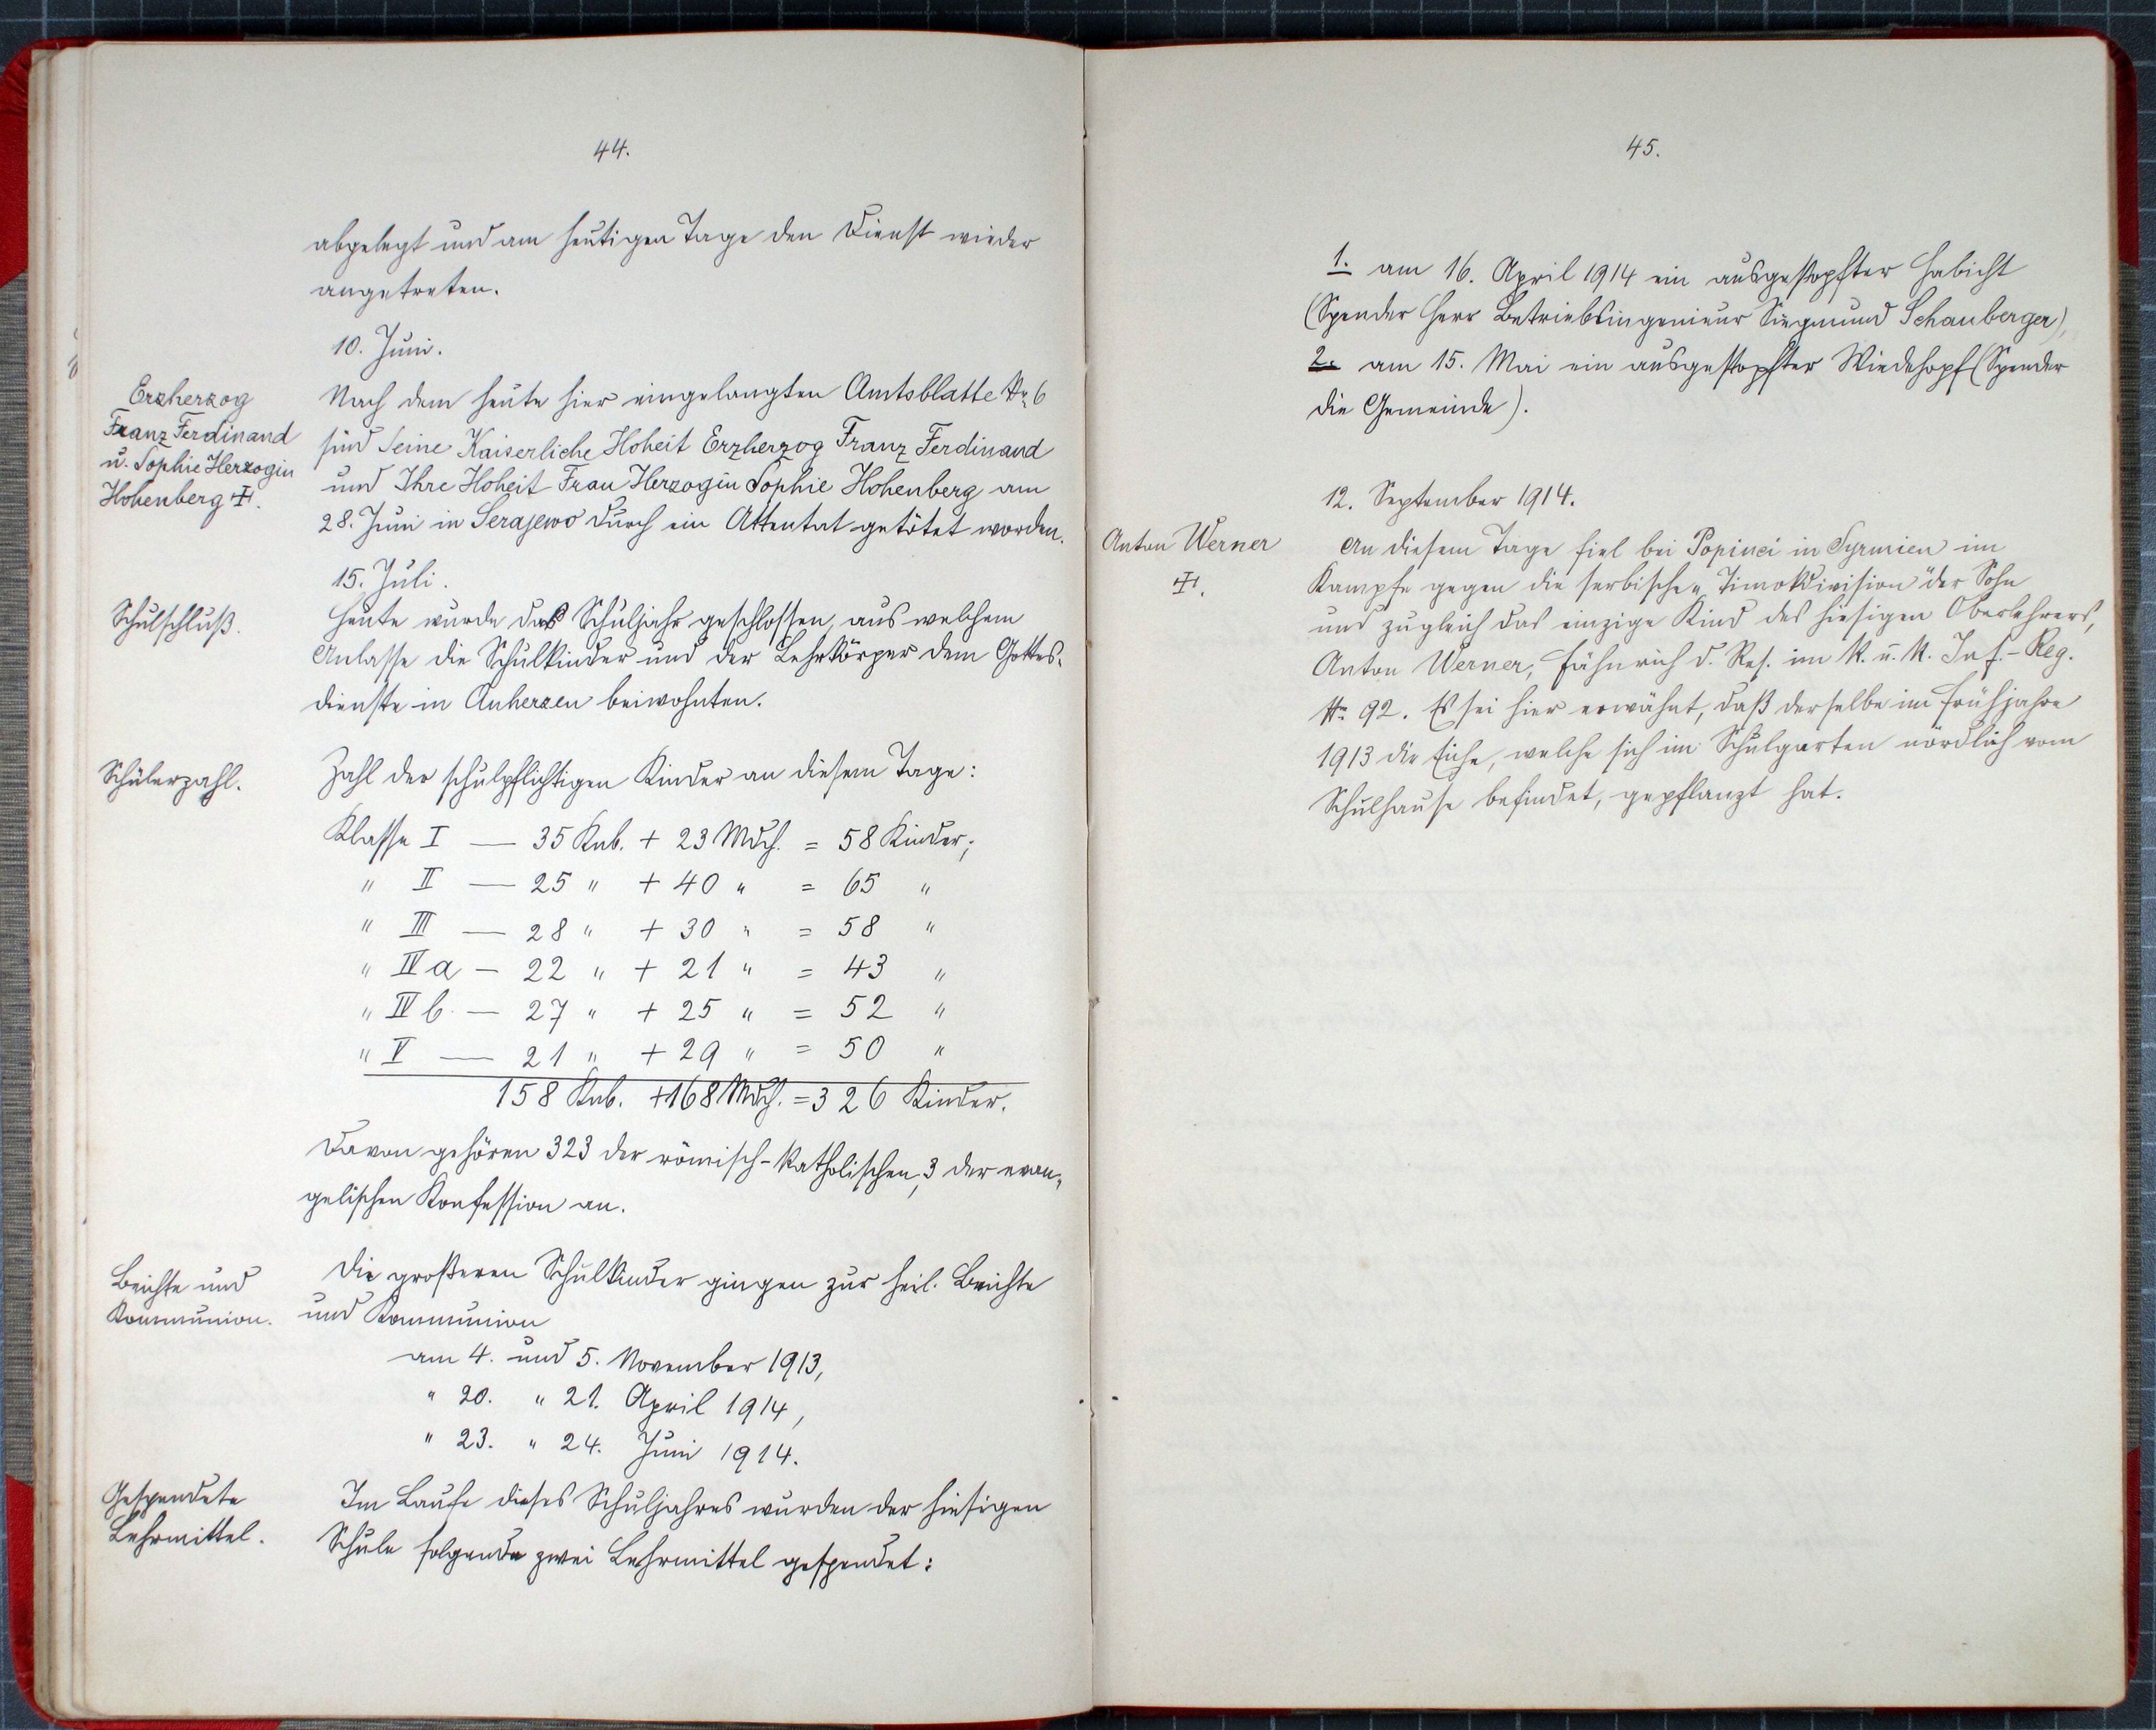 44.
abgelegt und am heutigen Tage den Dienst wieder
angetreten.
10. Juni.
Erzherzog
Franz Ferdinand
u. Sophie Herzogin
Hohenberg ✝.
Nach dem heute hier eingelangten Amtsblatte Nr. 6
sind Seine Kaiserliche Hoheit Erzherzog Franz Ferdinand
und Ihre Hoheit Frau Herzogin Sophie Hohenberg am
28. Juni in Serajewo durch ein Attentat getötet worden.
15. Juli.
Schulschluß.
Heute wurde das Schuljahr geschlossen, aus welchem
Anlasse die Schulkinder und der Lehrkörper dem Gottes-
dienste in Anherzen beiwohnten.
Schülerzahl.
Zahl der schulpflichtigen Kinder an diesem Tage:
Klasse I — 35 Knb. + 23 Mdch. = 58 Kinder;
" II — 25 " + 40 " = 65 "
" III — 28 " + 30 " = 58 "
" IVa — 22 " + 21 " = 43 "
" IVb. — 27 " + 25 " = 52 "
" V — 21 " + 29 " = 50 "
158 Knb. + 168 Mdch. = 326 Kinder.
Davon gehören 323 der römisch-katholischen, 3 der evan-
gelischen Konfession an.
Beichte und
Kommunion.
Die großeren Schulkinder gingen zur heil. Beichte
und Kommunion
am 4. und 5. November 1913,
" 20. " 21. April 1914,
" 23. " 24. Juni 1914.
Gespendete
Lehrmittel.
Im Laufe dieses Schuljahres wurden der hiesigen
Schule folgende zwei Lehrmittel gespendet:
45.
1. am 16. April 1914 ein ausgestopfter Habicht
(Spender Herr Betriebsingenieur Siegmund Schauberger),
2. am 15. Mai ein ausgestopfter Wiedehopf (Spender
die Gemeinde).
12. September 1914.
Anton Werner
✝.
An diesem Tage fiel bei Popinci in Syrmien im
Kampfe gegen die serbische „Timokdivision" der Sohn
und zugleich das einzige Kind des hiesigen Oberlehrers,
Anton Werner, Fähnrich d. Res. im K. u. K. Inf.-Reg.
Nr. 92. Es sei hier erwähnt, daß derselbe im Frühjahre
1913 die Eiche, welche sich im Schulgarten nördlich vom
Schulhause befindet, gepflanzt hat.